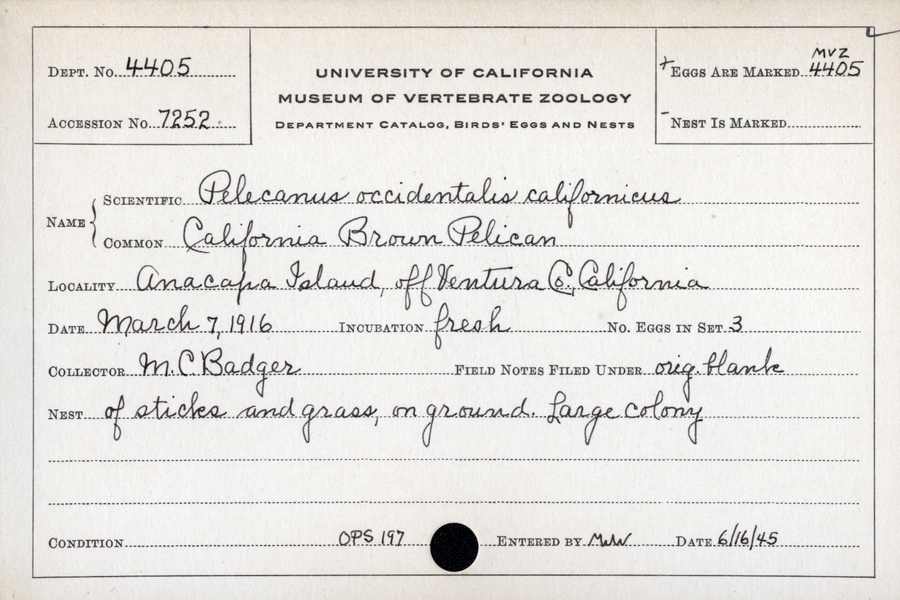 Dept. No. 4405
Accession No. 7252
UNIVERSITY OF CALIFORNIA
MUSEUM OF VERTEBRATE ZOOLOGY
Department Catalog, Birds' Eggs and Nests
MVZ
+ Eggs Are Marked 4405
- Nest Is Marked
Name { Scientific Pelecanus occidentalis californicus
Common California Brown Pelican
Locality Anacapa Island, off Ventura Co., California
Date March 7, 1916 Incubation fresh No. Eggs in Set 3
Collector M.C. Badger Field Notes Filed Under orig. blank
Nest of sticks and grass, on ground. Large colony
Condition OPS 197 Entered by Date 6/16/45